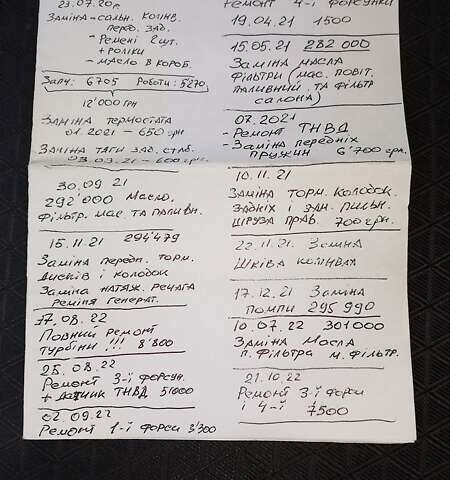 23.07.20р.
Заміна - сальн. колінв.
перед. зад.
- Ремені 2шт.
+ ролики
- масло в короб.
Запч: 6705 Роботи: 5270
12'000 грн
Заміна термостата
01.2021 - 650 грн
Заміна тяги зад. стаб.
03.03.21 - 600 грн.
30.09 21
292'000 Масло.
Фільтр. мас. та паливн.
15.11.21 294'479
Заміна передн. торм.
дисків і колодок
Заміна натяж. речага
реміня генерат.
17.08.22
Повний ремонт
турбіни !!! 8'800
25.08.22
Ремонт 3-ї форсун.
+ датчик ТНВД 51000
02.09.22
Ремонт 1-ї форси 3'300
Ремонт 4-ї форсунки
19.04.21 1500
15.05.21 282 000
Заміна масла
Фільтри (мас. повіт.
паливний. та фільтр
салона)
07.2021
- Ремонт ТНВД
- Заміна передніх
пружин 6'700 грн.
10.11.21
Заміна торм. колодок.
задніх і пильн.
шруза прав. 700 грн.
22.11.21 Заміна
шківа колінвла
17.12.21 Заміна
помпи 295 990
10.07.22 301000
Заміна Масла
п. Фільтра м. фільтр.
21.10.22
Ремонт 3-ї форси
і 4-ї 7500